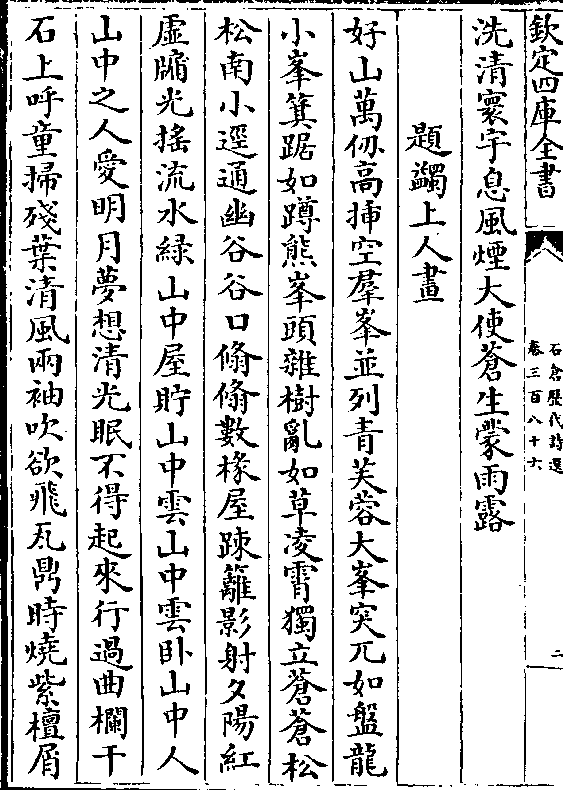 欽定四庫全書
石倉歷代詩選
卷三百八十六
二
洗清寰宇息風煙大使蒼生蒙雨露
題蠲上人畫
好山萬仞高揷空羣峯並列青芙蓉大峯突兀如盤龍
小峯箕踞如蹲熊峯頭雜樹亂如草凌霄獨立蒼蒼松
松南小逕通幽谷谷口翛翛數椽屋疎籬影射夕陽紅
虛牗光搖流水綠山中屋貯山中雲山中雲卧山中人
山中之人愛明月夢想清光眠不得起來行過曲欄干
石上呼童掃殘葉清風兩袖吹欲飛瓦鼎時燒紫檀屑